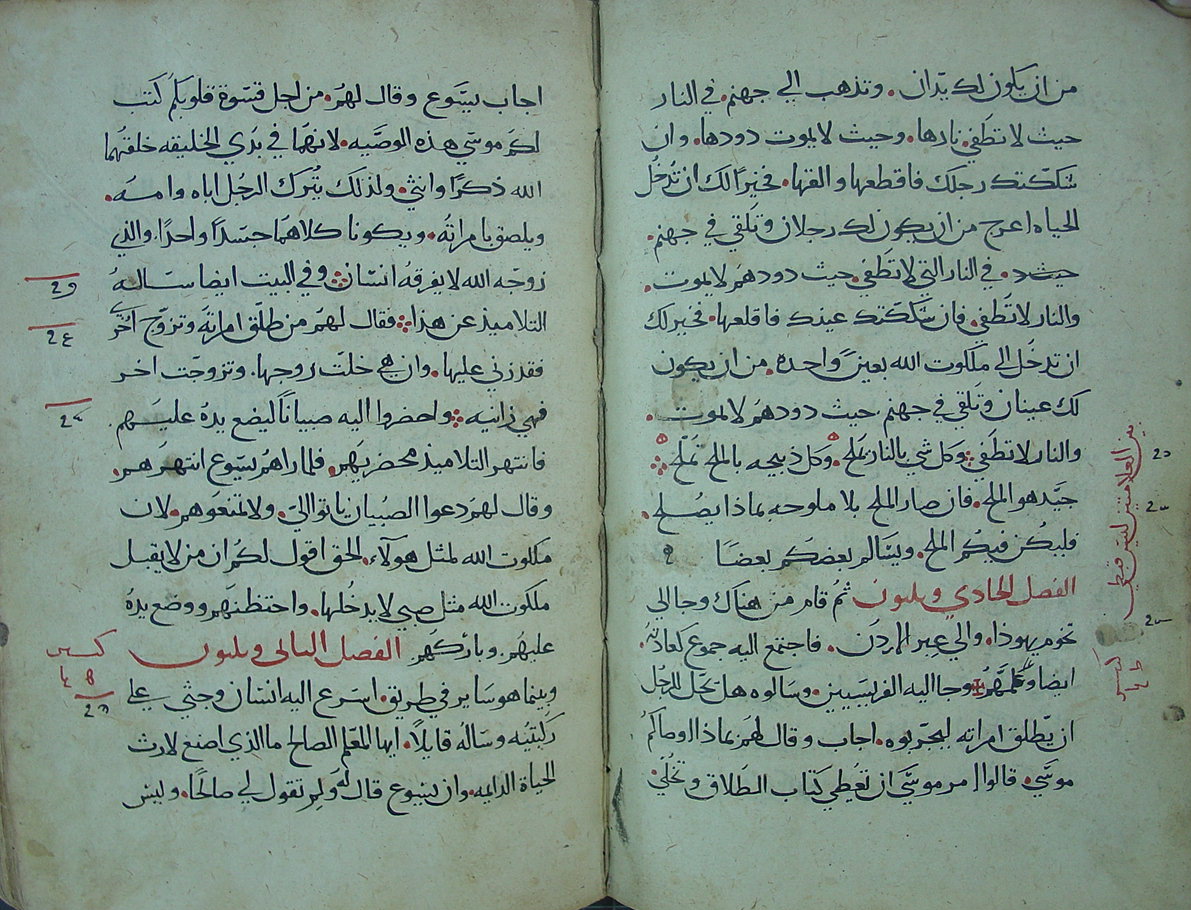 من ان يكون لك يدان. وتذهب الي جهنم. في النار
حيث لا تطفي نارها. وحيث لا يموت دودها. وان
شككتك رجلك فاقطعها والقها. فخيرًا لك ان تدخُل
الحياه اعرج من ان يكون لك رجلان وتلقي في جهنم.
حيث د. في النار التي لا تطفي. حيث دودهم لا يموت.
والنار لا تطفي. فان شككتك عينك فاقلعها. فخير لك
ان تدخُل الي ملكوت الله بعينٍ واحده. من ان يكون
لك عينان وتلقي في جهنم. حيث دودهُم لا يموت.
والنار لا تطفي. وكل شي بالنار يملح. وكل ذبيحه بالملح تملح
جيّد هو الملح. فان صار الملح بلا ملوحه بماذا يصُلح.
فليكن فيكُم الملح. ويسالم بعضكم بعضًا
الفصل الحادي وتلتون ثم قام من هناك وجا الي
تخوم يهوذا. والي عبر الاردن. فاجتمع اليه جموع كعادته.
ايضا وعلمهُم وجا اليه الفريسيين. وسالوه هل تحل للرجُل
ان يطلق امراته ليجربوه. اجاب وقال لهم بماذا اوصاكُم
موسَي. قالوا امر موسَي ان تعُطي كتاب الطَلاق وتخلي.
بين العلامتين ليس قبطي
اجاب يسَوع وقال لهم. من اجل قسَوة قلوبكُم كتب
لكم موسي هذه الوصَيه. لانهُما في بدَي الخليقه خلقهُما
الله ذكرًا وانثي. ولذلك يتُرك الرجُل اباه وامهُ.
ويلصق بامراتهُ. ويكونا كلاهُما جسَدًا واحدًا. والذي
زوجَه الله لا يفرقهُ انسَان وفي البيت ايضا سَالهُ
التلاميذ عن هذا فقال لهم من طلق امراتهُ وتزوج اخَري
فقد زني عليها. وان هي خلت زوجها. وتزوجت اخر
فهي زانيه واحضروا اليه صبيانًا ليضع يدهُ عليهم.
فانتهر التلاميذ محضريهم. فلما راهُم يسَوع انتهرهم.
وقال لهم دعوا الصبُيان ياتوا الي. ولا تمنعَوهم. لان
ملكوت الله لمثل هولاء. الحق اقول لكُم ان من لا يقبل
ملكوت الله مثل صبي لا يدخُلها. واحتظنهم ووضع يدهُ
عليهُم. وباركهم. الفصل التاني وتلتون
وبينما هو ساير في طريق. اسَرع اليه انسَان وجثي علي
ركَبتيه وسَالهُ قايلًا. ايها المعلم الصالح ما الذي اصنع لارث
الحياة الدايمه. وان يسَوع قال لهُ ولم تقول لي صالحًا. وليس